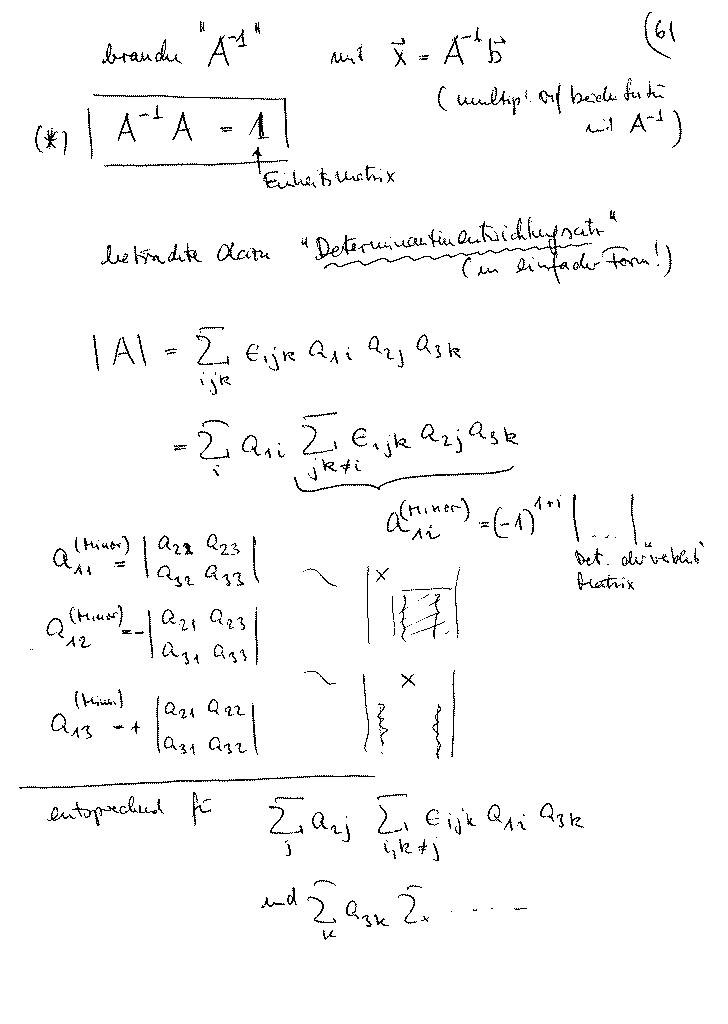 (61
brauche "A⁻¹" mit x⃗ = A⁻¹ b⃗
(multipl. auf beiden Seiten
mit A⁻¹)
(*) A⁻¹ A = 1
Einheitsmatrix
betrachte dazu "Determinantenentwicklungssatz"
(in einfacher Form!)
|A| = Σ_{ijk} ε_{ijk} a_{1i} a_{2j} a_{3k}
= Σ_i a_{1i} Σ_{jk≠i} ε_{ijk} a_{2j} a_{3k}
a_{1i}^{(Minor)} = (-1)^{1+i} | ... |
Det. der verbleib.
Matrix
a_{11}^{(Minor)} = | a_{22} a_{23} |
| a_{32} a_{33} |
~ | × |
a_{12}^{(Minor)} = - | a_{21} a_{23} |
| a_{31} a_{33} |
a_{13}^{(Minor)} = + | a_{21} a_{22} |
| a_{31} a_{32} |
~ | × |
entsprechend für Σ_j a_{2j} Σ_{i,k≠j} ε_{ijk} a_{1i} a_{3k}
und Σ_k a_{3k} Σ. . . . . –